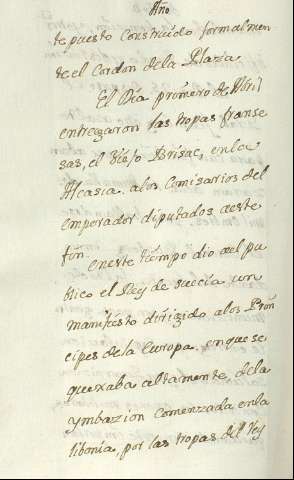 Año
te puesto Construido formalmen
te el Cordon dela Plaza
El Dia primero de Abril
entregaron las tropas franse
sas, el viejo Brisac, enla
Alcasia. alos Comisarios del
emperador diputados aeste
fin.
eneste tiempo dio ael pu
blico el Rey de suecia un
manifiesto dirigido alos Prin
cipes dela Europa. enquese
quexaba altamente, dela
ymbazzion Comenzada enla
libonia, por las tropas del Rey